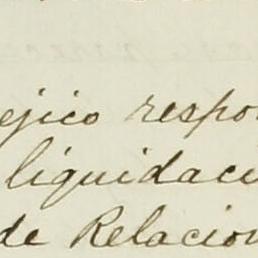 ejico respo
liquidaci
de Relacion